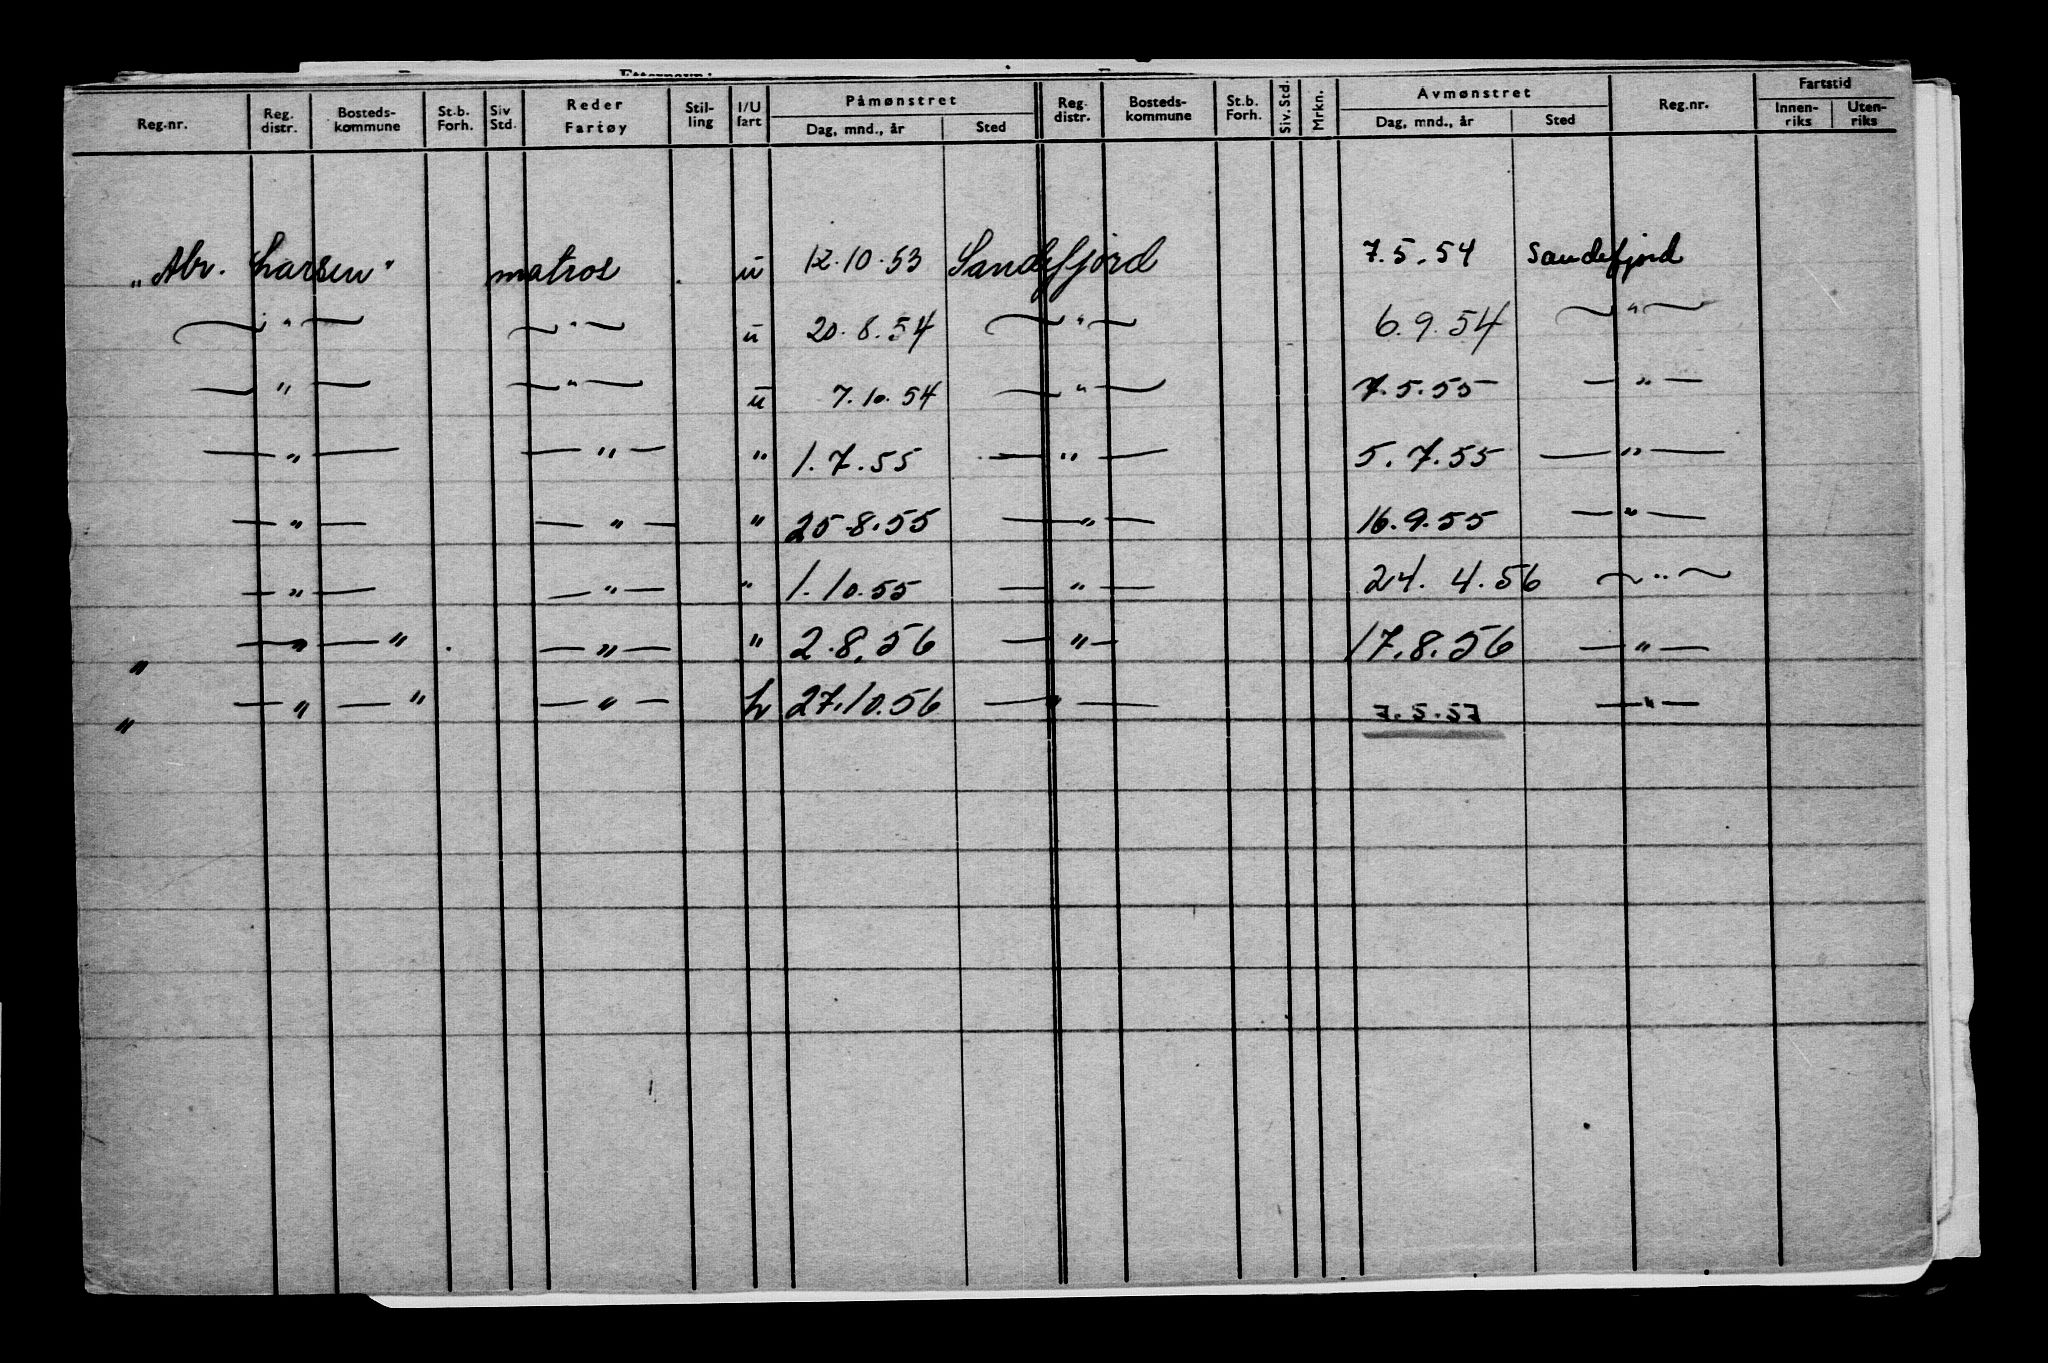 Reg.nr. Reg. distr. Bosteds-kommune St.b. Forh. Siv Std. Reder Fartøy Stil-ling I/U fart Påmønstret Dag, mnd., år Sted Reg. distr. Bosteds-kommune St.b. Forh. Siv. Std. Mrkn. Avmønstret Dag, mnd., år Sted Reg.nr. Fartstid Innen-riks Uten-riks
„Abr. Larsen" matros . u 12.10.53 Sandefjord 7.5.54 Sandefjord
— " — — " — u 20.8.54 — " — 6.9.54 — " —
— " — — " — u 7.10.54 — " — 7.5.55 — " —
— " — — " — " 1.7.55 — " — 5.7.55 — " —
— " — — " — " 25.8.55 — " — 16.9.55 — " —
— " — — " — " 1.10.55 — " — 24.4.56 — " —
„ — " — " . — " — " 2.8.56 — " — 17.8.56 — " —
„ — " — " — " — h 27.10.56 — " — 7.5.57 — " —